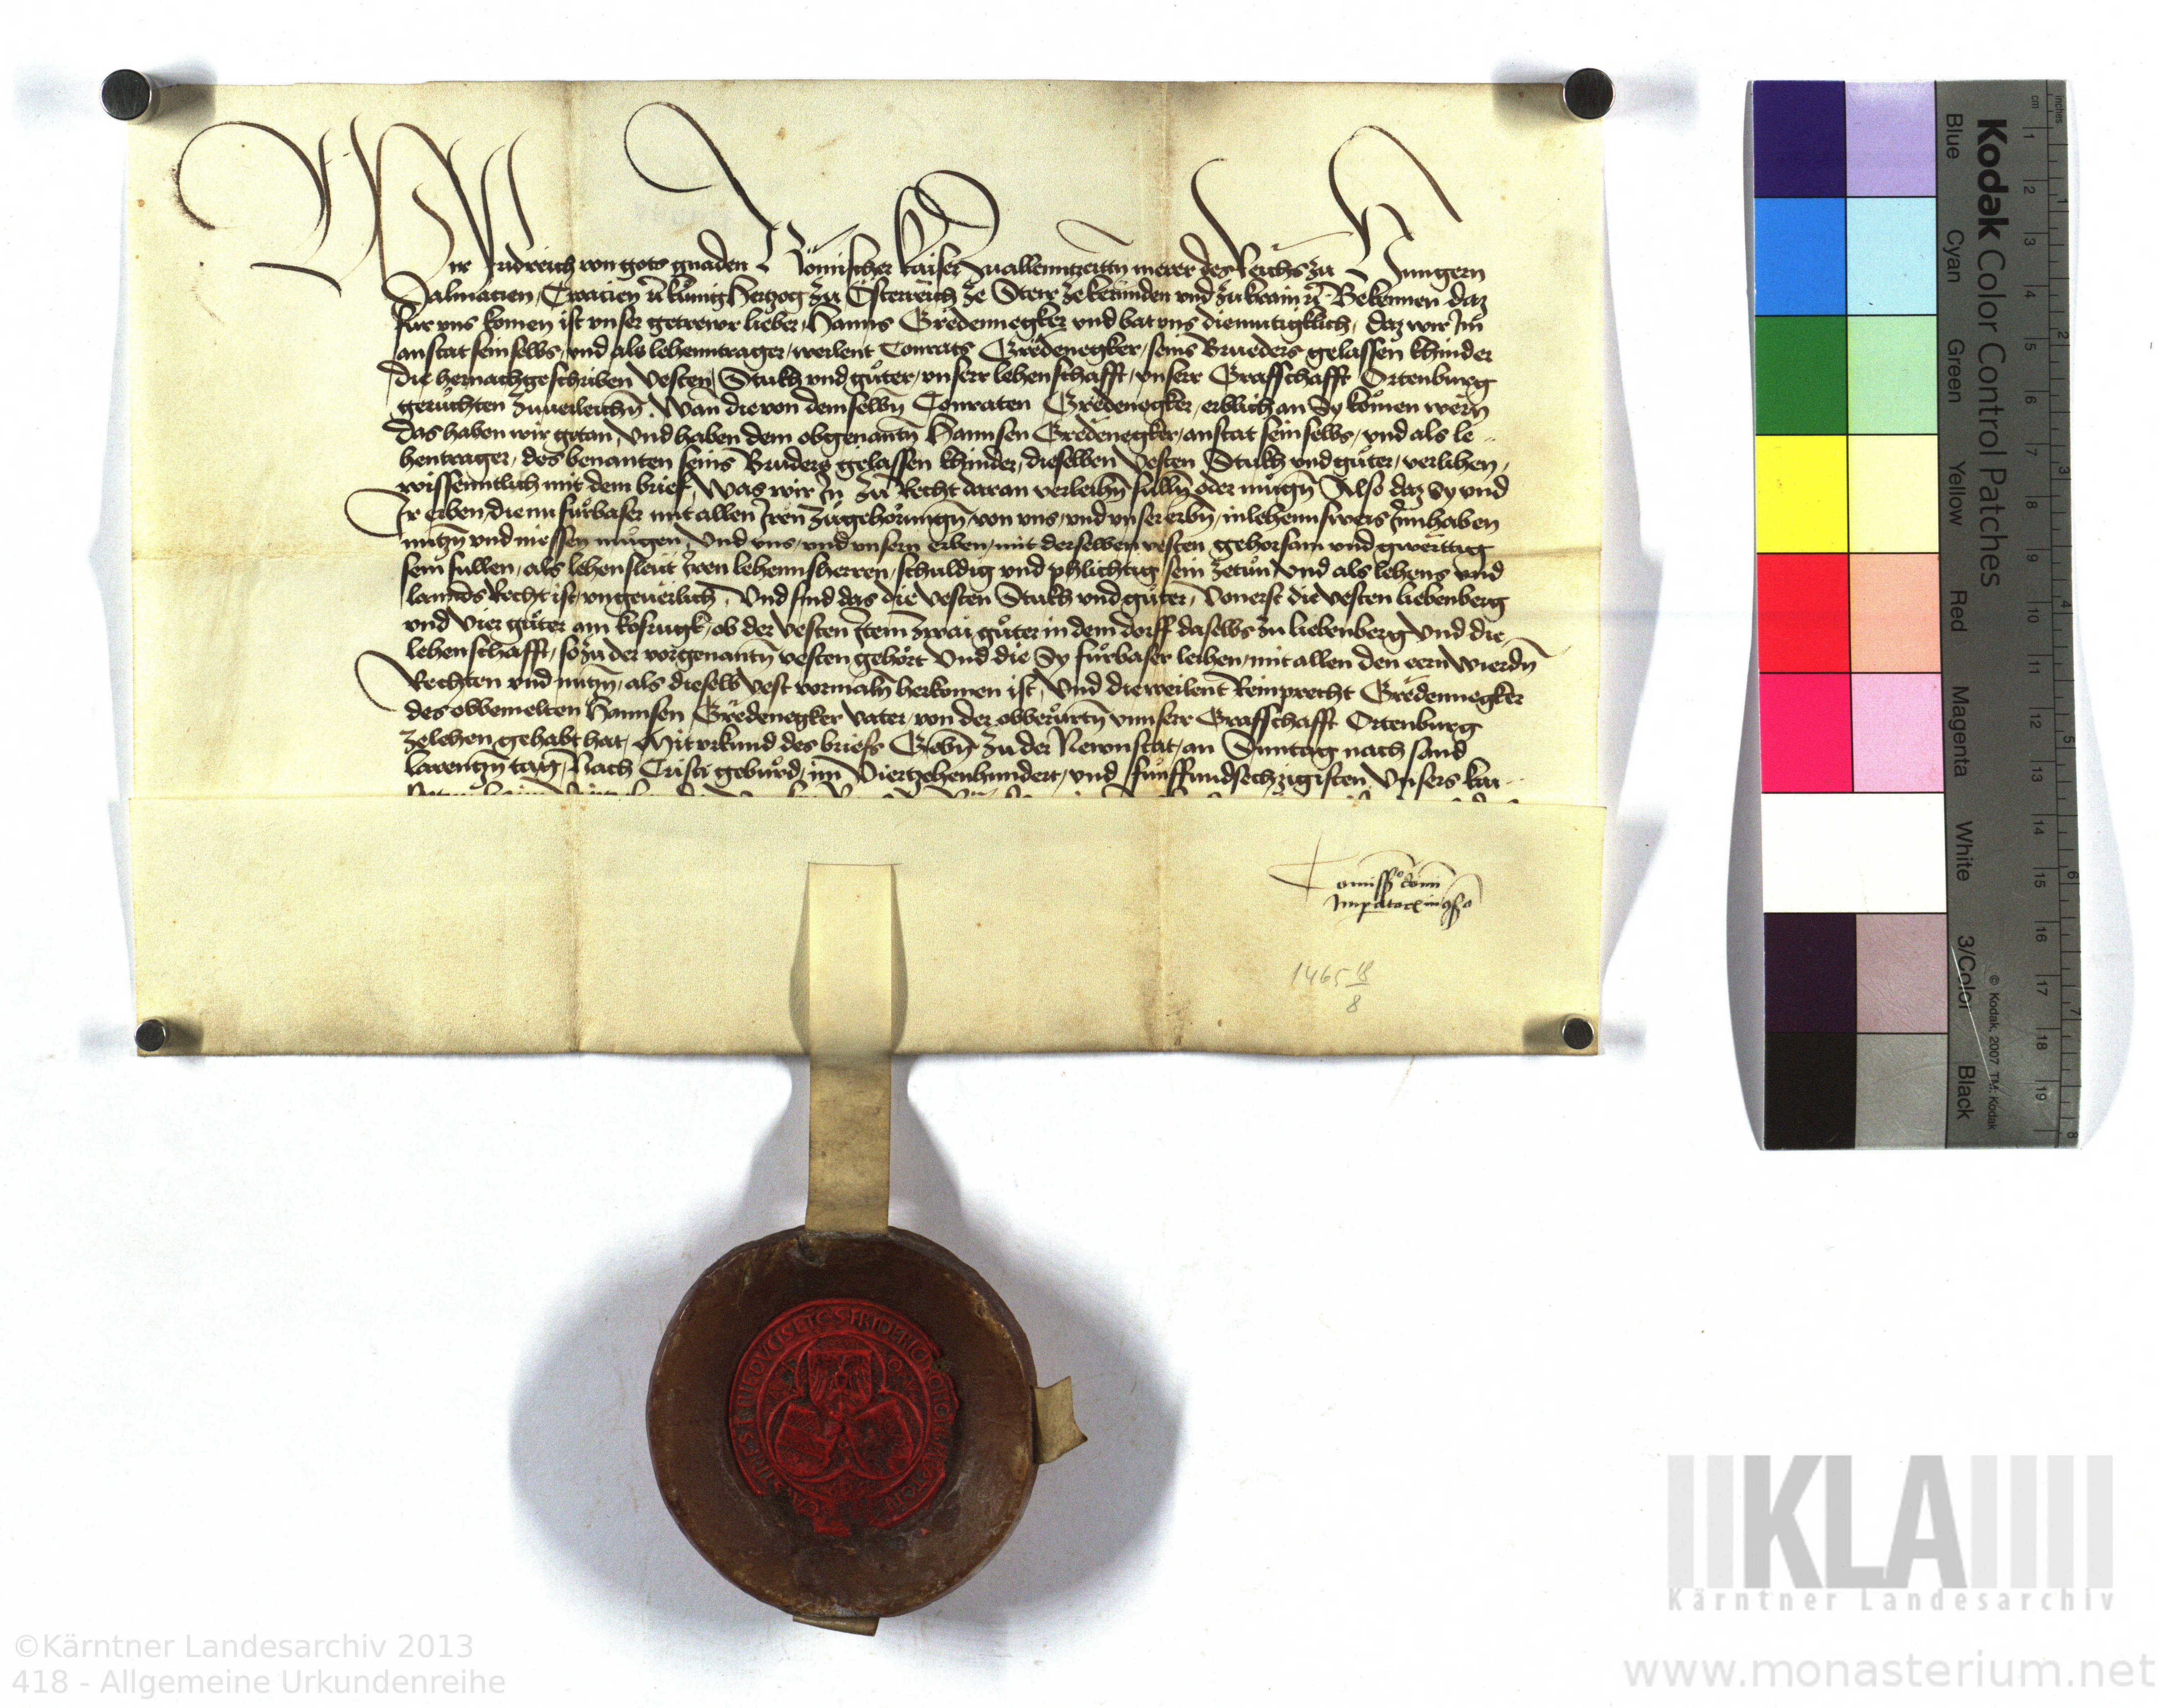 Wir Fridreich von gots gnaden Römischer kaiser zuallenntzeitñ merer des Reichs zu Hungern
Dalmatien, Croatien ꝛc̃ kunig Hertzog zu Österreich ze Steir ze kernnden vnd zu krain ꝛc̃ Bekennen daz
für vns komen ist vnser getrewr lieber, Hanns Gredennegker vnd bat vns diemutigklich, daz wir Jm
anstat sein selbs, vnd als lehenntrager, weilent Conrats Gredenegker, seins Brueders gelassen khinder
die hernachgeschriben vesten, Stukh vnd gueter, vnserr lehenschafft, vnserr Grafschafft Ortenburg
geruchten zuuerleichñ. Wan die von demselbñ Conraten Gredenegker, erblich an Sy komen werñ
das haben wir getan, Vnd haben dem obgenantñ Hannsen Gredenegker, anstat sein selbs, vnd als le-
hentrager, des benanten seins Bruders gelassen khinder, dieselben Vesten Stukh vnd gueter, verlihen,
wissenntlich mit dem brief, Was wir Jn zu Recht daran verleihñ sullñ oder mugñ Also daz Sy vnd
Jr erben, die nu fürbaser mit allen Jren zugehorungñ, von vns, vnd vnser erbñ, in lehennsweis Jnnhaben
nutzñ vnd niessen mugen Vnd vns, vnd vnsern erben, mit derselben vesten gehorsam vnd gwerttig
sein sullen, als lehensleut Jren lehennsherren, schuldig vnd phlichtig sein zetun, Vnd als lehens vnd
lannds Recht ist, vngeuerlich. Vnd sind das die vesten Stukh vnd gueter, Vonerst die vesten liebenberg
vnd vier gueter am kosrugk, ob der vesten Jtem zwai gueter in dem dorff daselbs zu liebenberg Vnd die
lehenschafft, so zu der vorgenantñ vesten gehört Vnd die Sy fürbaser leihen, mit allen den eern wierdñ
Rechten vnd nutzñ, als dieselb Vest vormaln herkomen ist, Vnd die weilent Reinprecht Gredennegker
des obbemelten Hannsen Gredenegker Vater, von der obberurtñ vnnserr Grafschafft Ortenburg
zelehen gehabt hat, Mit vrkund des briefs Gebñ zu der Newnstat, an Sunntag nach sand
larentzñ tag, Nach Cristi geburd, im Viertzehenhundert, vnd fünffundsechzigisten Vnsers kai-
Comissio domi
Imperatoris in ꝯsilio
1465 18/8
Kodak Color Control Patches
Blue Cyan Green Yellow Red Magenta White 3/Color Black
© Kodak, 2007 TM: Kodak
cm 1 2 3 4 5 6 7 8 9 10 11 12 13 14 15 16 17 18 19
inches 1 2 3 4 5 6 7 8
KLA
Kärntner Landesarchiv
©Kärntner Landesarchiv 2013
418 - Allgemeine Urkundenreihe
www.monasterium.net